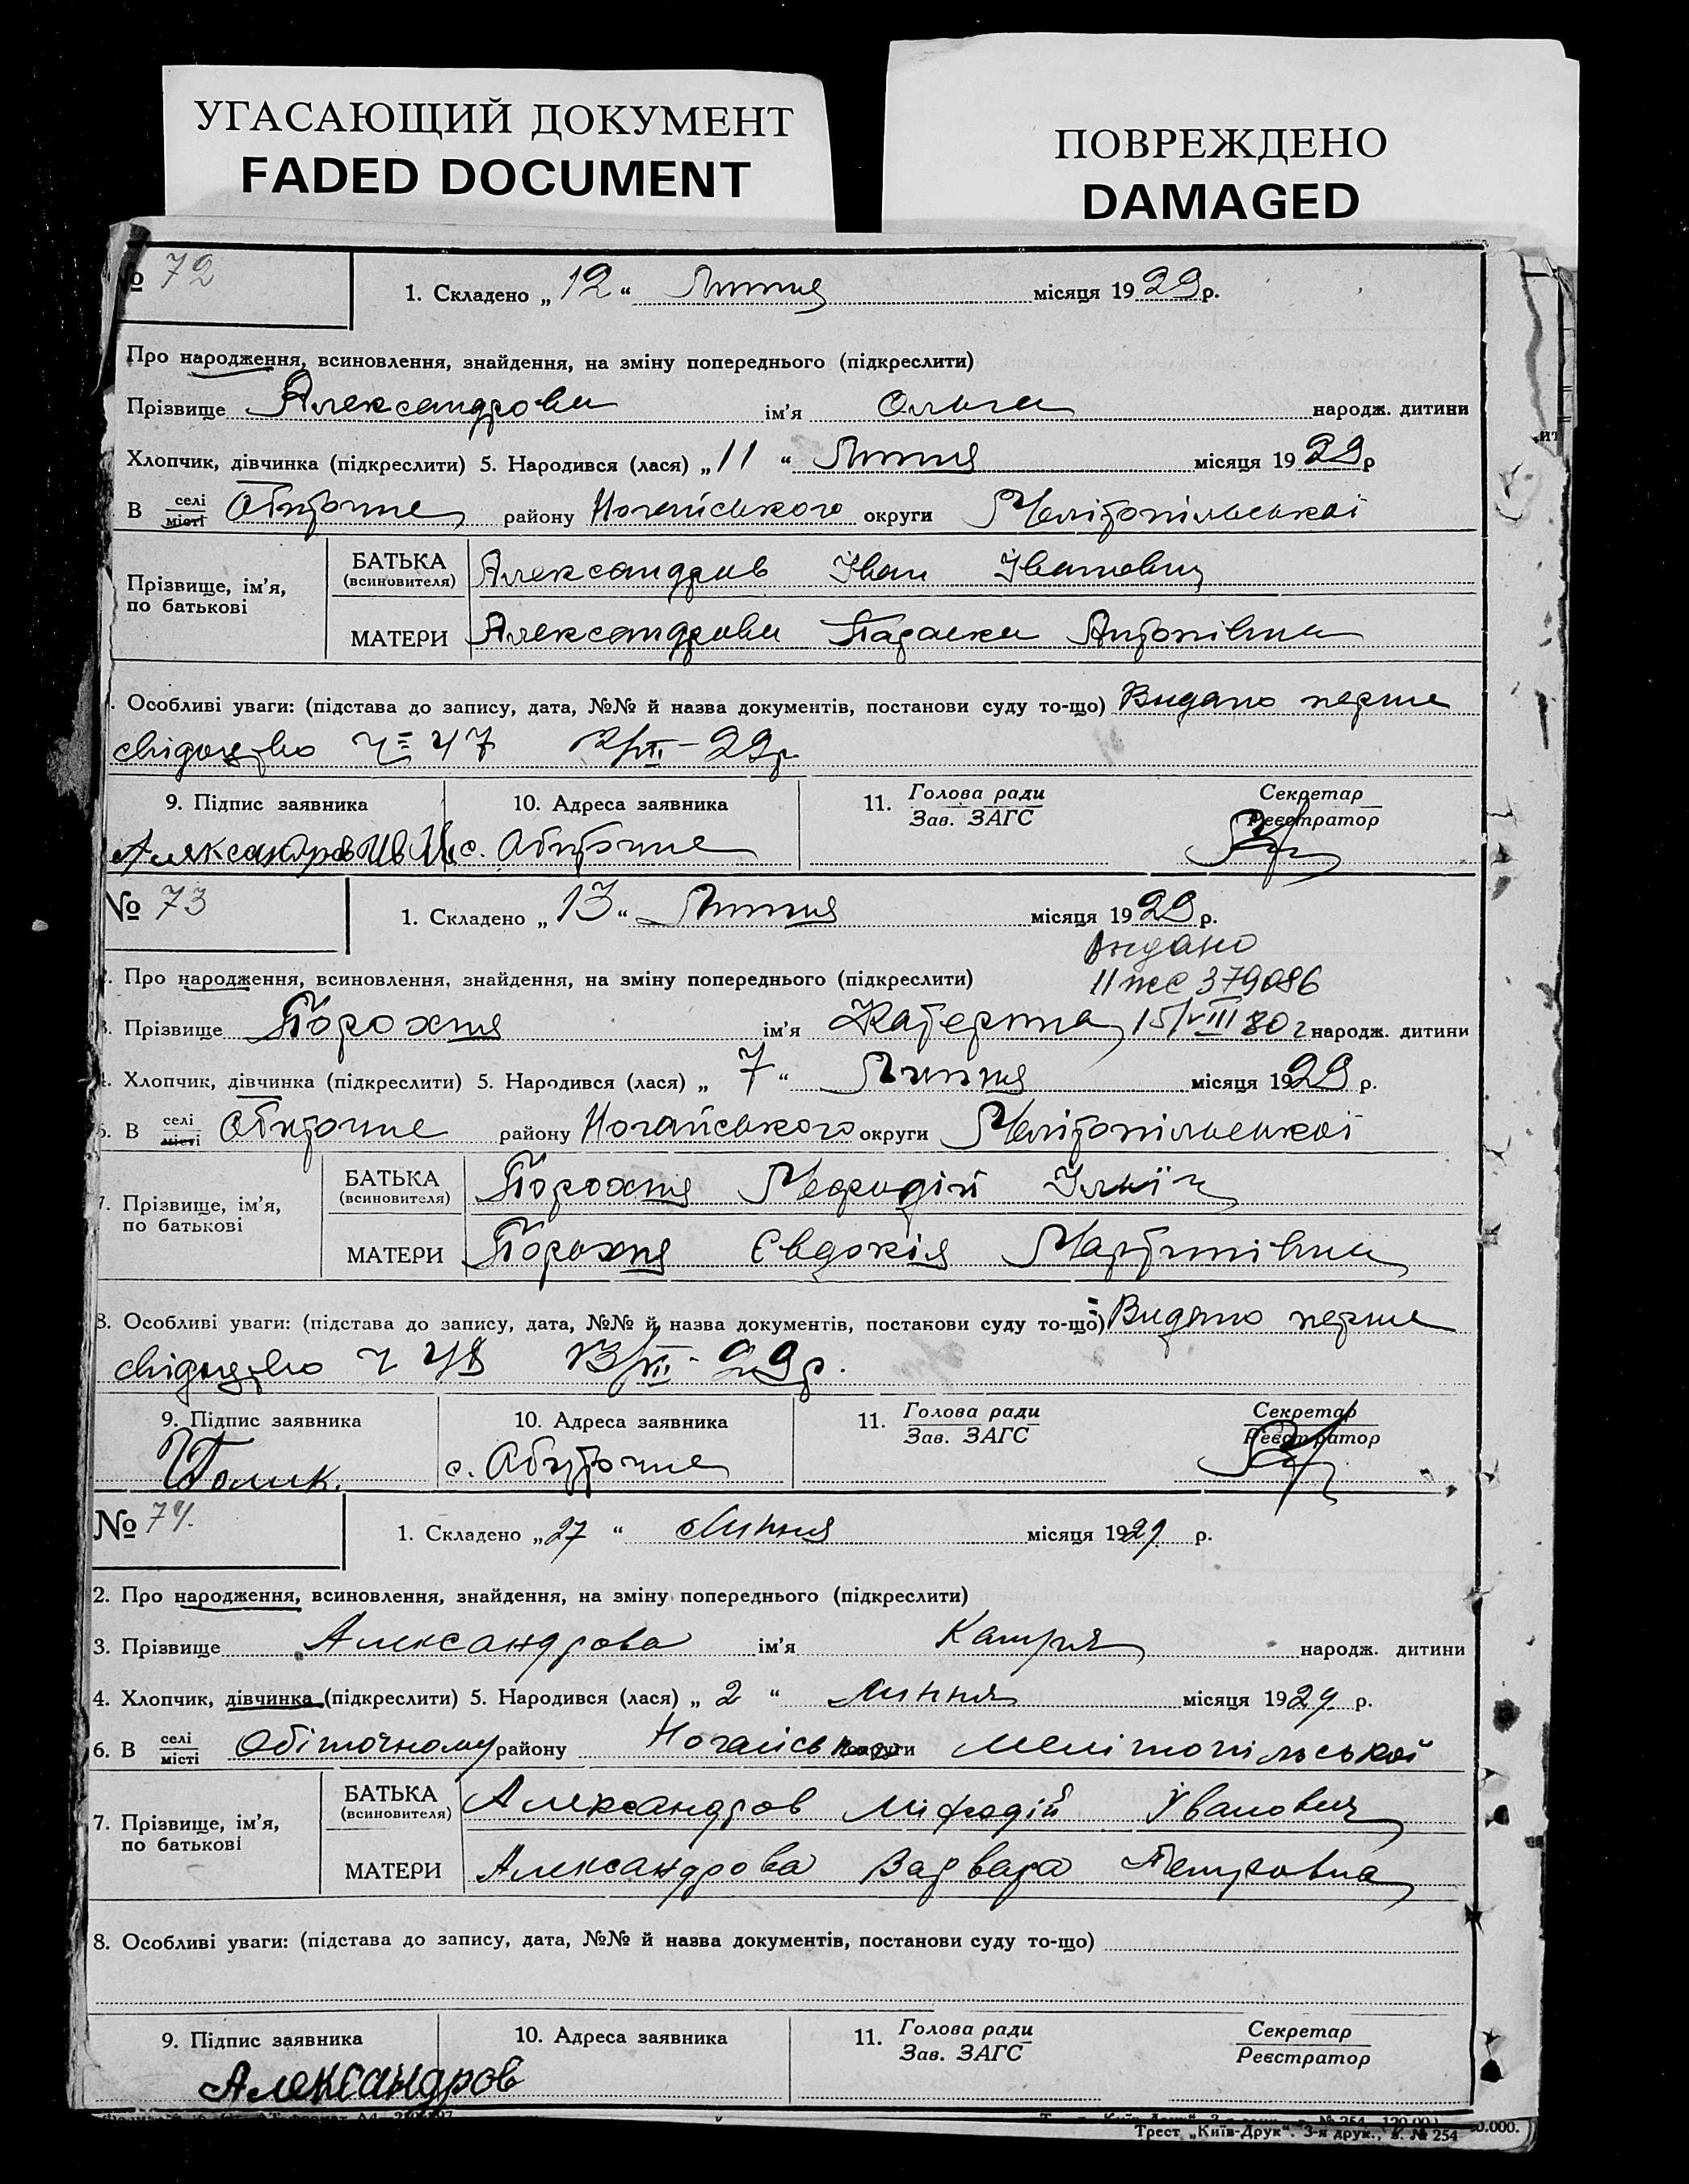 УГАСАЮЩИЙ ДОКУМЕНТ
FADED DOCUMENT
ПОВРЕЖДЕНО
DAMAGED
№ 72
1. Складено „12“ Липня місяця 1929 р.
Про народження, всиновлення, знайдення, на зміну попереднього (підкреслити)
Прізвище Александрова ім'я Ольга народж. дитини
Хлопчик, дівчинка (підкреслити) 5. Народився (лася) „11“ Липня місяця 1929 р
В селі місті Обиточне району Ногайського округи Мелітопільської
Прізвище, ім'я, по батькові
БАТЬКА (всиновителя) Александров Іван Іванович
МАТЕРИ Александрова Параска Антонівна
Особливі уваги: (підстава до запису, дата, №№ й назва документів, постанови суду то-що) Видано перше
свідоцтво ч 47 12/VII-29р
9. Підпис заявника 10. Адреса заявника 11. Голова ради Зав. ЗАГС Секретар Реєстратор
Аляксандров Ив с. Обиточне
№ 73
1. Складено „13“ Липня місяця 1929 р.
Видано
2. Про народження, всиновлення, знайдення, на зміну попереднього (підкреслити) 379086
3. Прізвище Порохня ім'я Катерина 15/VIII 80 г народж. дитини
4. Хлопчик, дівчинка (підкреслити) 5. Народився (лася) „7“ Липня місяця 1929 р.
6. В селі місті Обиточне району Ногайського округи Мелітопільської
7. Прізвище, ім'я, по батькові
БАТЬКА (всиновителя) Порохня Мефодій Ілліч
МАТЕРИ Порохня Євдокія Мартинівна
8. Особливі уваги: (підстава до запису, дата, №№ й назва документів, постанови суду то-що) Видано перше
свідоцтво ч 48 13/VII-29р.
9. Підпис заявника 10. Адреса заявника 11. Голова ради Зав. ЗАГС Секретар Реєстратор
с. Обиточне
№ 74.
1. Складено „27“ Липня місяця 1929 р.
2. Про народження, всиновлення, знайдення, на зміну попереднього (підкреслити)
3. Прізвище Александрова ім'я Катря народж. дитини
4. Хлопчик, дівчинка (підкреслити) 5. Народився (лася) „2“ липня місяця 1929 р.
6. В селі місті Обіточному району Ногайського округи Мелітопільської
7. Прізвище, ім'я, по батькові
БАТЬКА (всиновителя) Александров Міфодій Іванович
МАТЕРИ Александрова Варвара Петровна
8. Особливі уваги: (підстава до запису, дата, №№ й назва документів, постанови суду то-що)
9. Підпис заявника 10. Адреса заявника 11. Голова ради Зав. ЗАГС Секретар Реєстратор
Александров
Трест „Київ-Друк“. 3-я друк., з. № 254